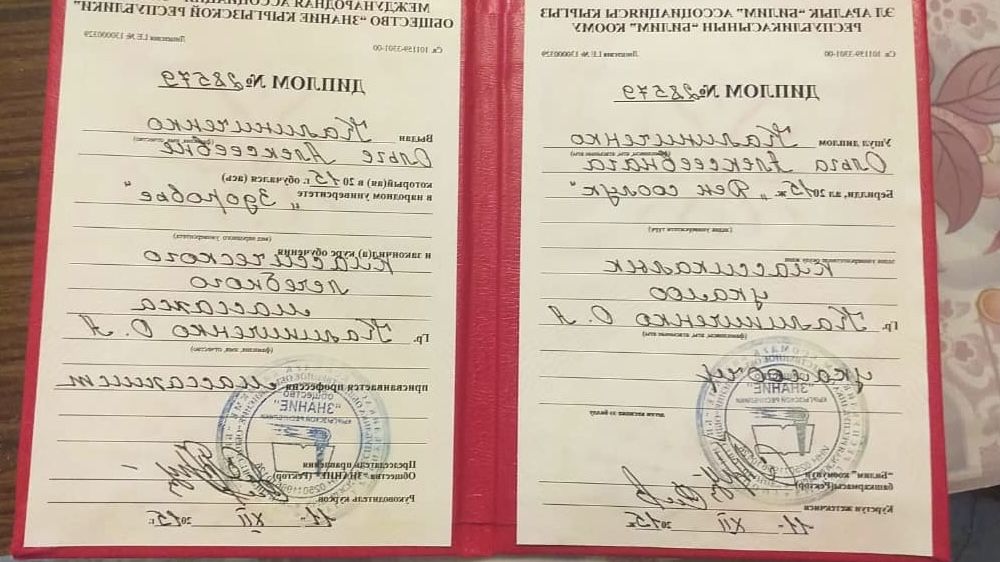 ЭЛ АРАЛЫК "БИЛИМ" АССОЦИАЦИЯСЫ КЫРГЫЗ
РЕСПУБЛИКАСЫНЫН "БИЛИМ" КООМУ
Св. 101159-3301-00 Лицензия LE № 130000329
ДИПЛОМ № 28579
Ушул диплом Калиниченко
Ольга Алексеевнага
Берилди, ал 2015ж. „Ден соолук"
(элдик университети түрү)
Классикалык
укалоо
Гр. Калиниченко О. А
(фамилиясы, аты, атасынын аты)
укалоочу
"Билим" коомунун
башкармасы (Ректор)
Курстун жетекчиси
11- XII 2015ж
МЕЖДУНАРОДНАЯ АССОЦИАЦИЯ
ОБЩЕСТВО "ЗНАНИЕ" КЫРГЫЗСКОЙ РЕСПУБЛИКИ"
Св. 101159-3301-00 Лицензия LE № 130000329
ДИПЛОМ № 28579
Выдан Калиниченко
(фамилия, имя, отчество)
Ольге Алексеевне
который(ая) в 2015 г. обучался (ась)
в народном университете „Здоровье"
(вид народного университета)
и закончил(а) курс обучения
классического
лечебного
массажа
Гр. Калиниченко О. А
(фамилия, имя, отчество)
присваивается профессия массажист
ОБЩЕСТВО
"ЗНАНИЕ"
КЫРГЫЗСКОЙ РЕСПУБЛИКИ
Председатель правления
Общества "ЗНАНИЕ" (Ректор)
Руководитель курсов
11- XII 2015 г.